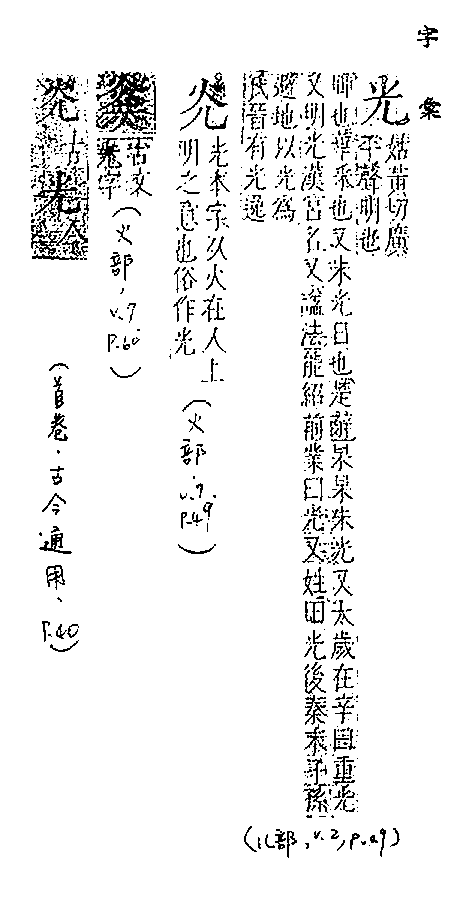 字彙
光
姑黃切廣
平聲明也
輝也華采也又朱光日也楚辭杲杲朱光又太歲在辛曰重光
又明光漢宮名又諡法能紹前業曰光又姓田光後秦末子孫
避地以光為
氏晉有光逸
(儿部,v.2,p.49)
灮
光本字从火在人上
明之意也俗作光
(火部,v.7,p.49)
古文
光字
(火部,v.7,p.60)
灮古光今
(首卷.古今通用、p.40)